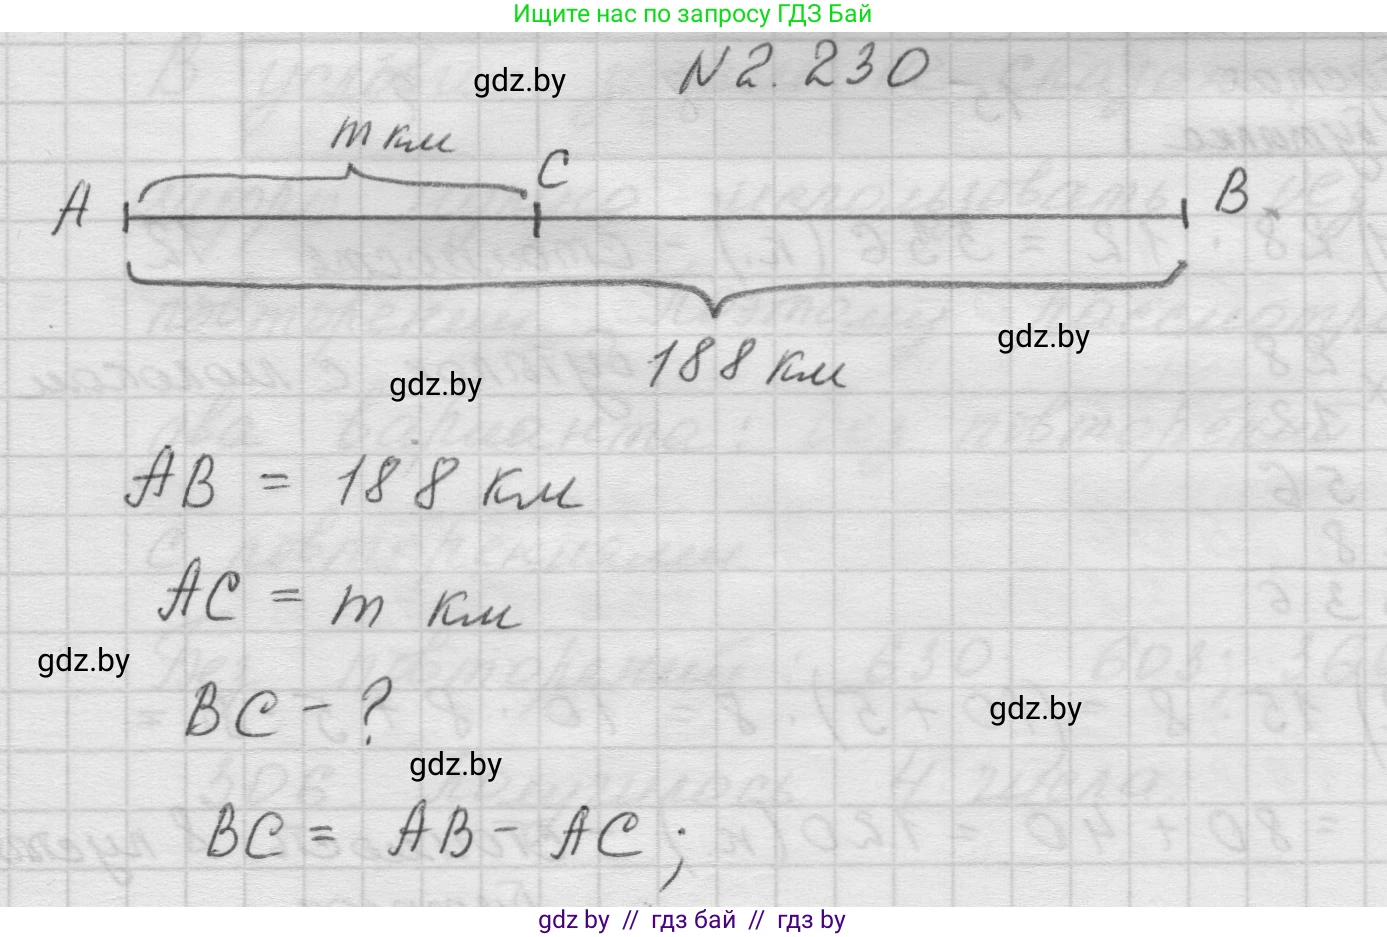 Ищите нас по запросу ГДЗ Бай
N 2. 230
gdz.by
m км
A C B
188 км
gdz.by
gdz.by
AB = 188 км
AC = m км
gdz.by
BC - ?
gdz.by
gdz.by
BC = AB - AC;
gdz by // гдз бай // гдз by